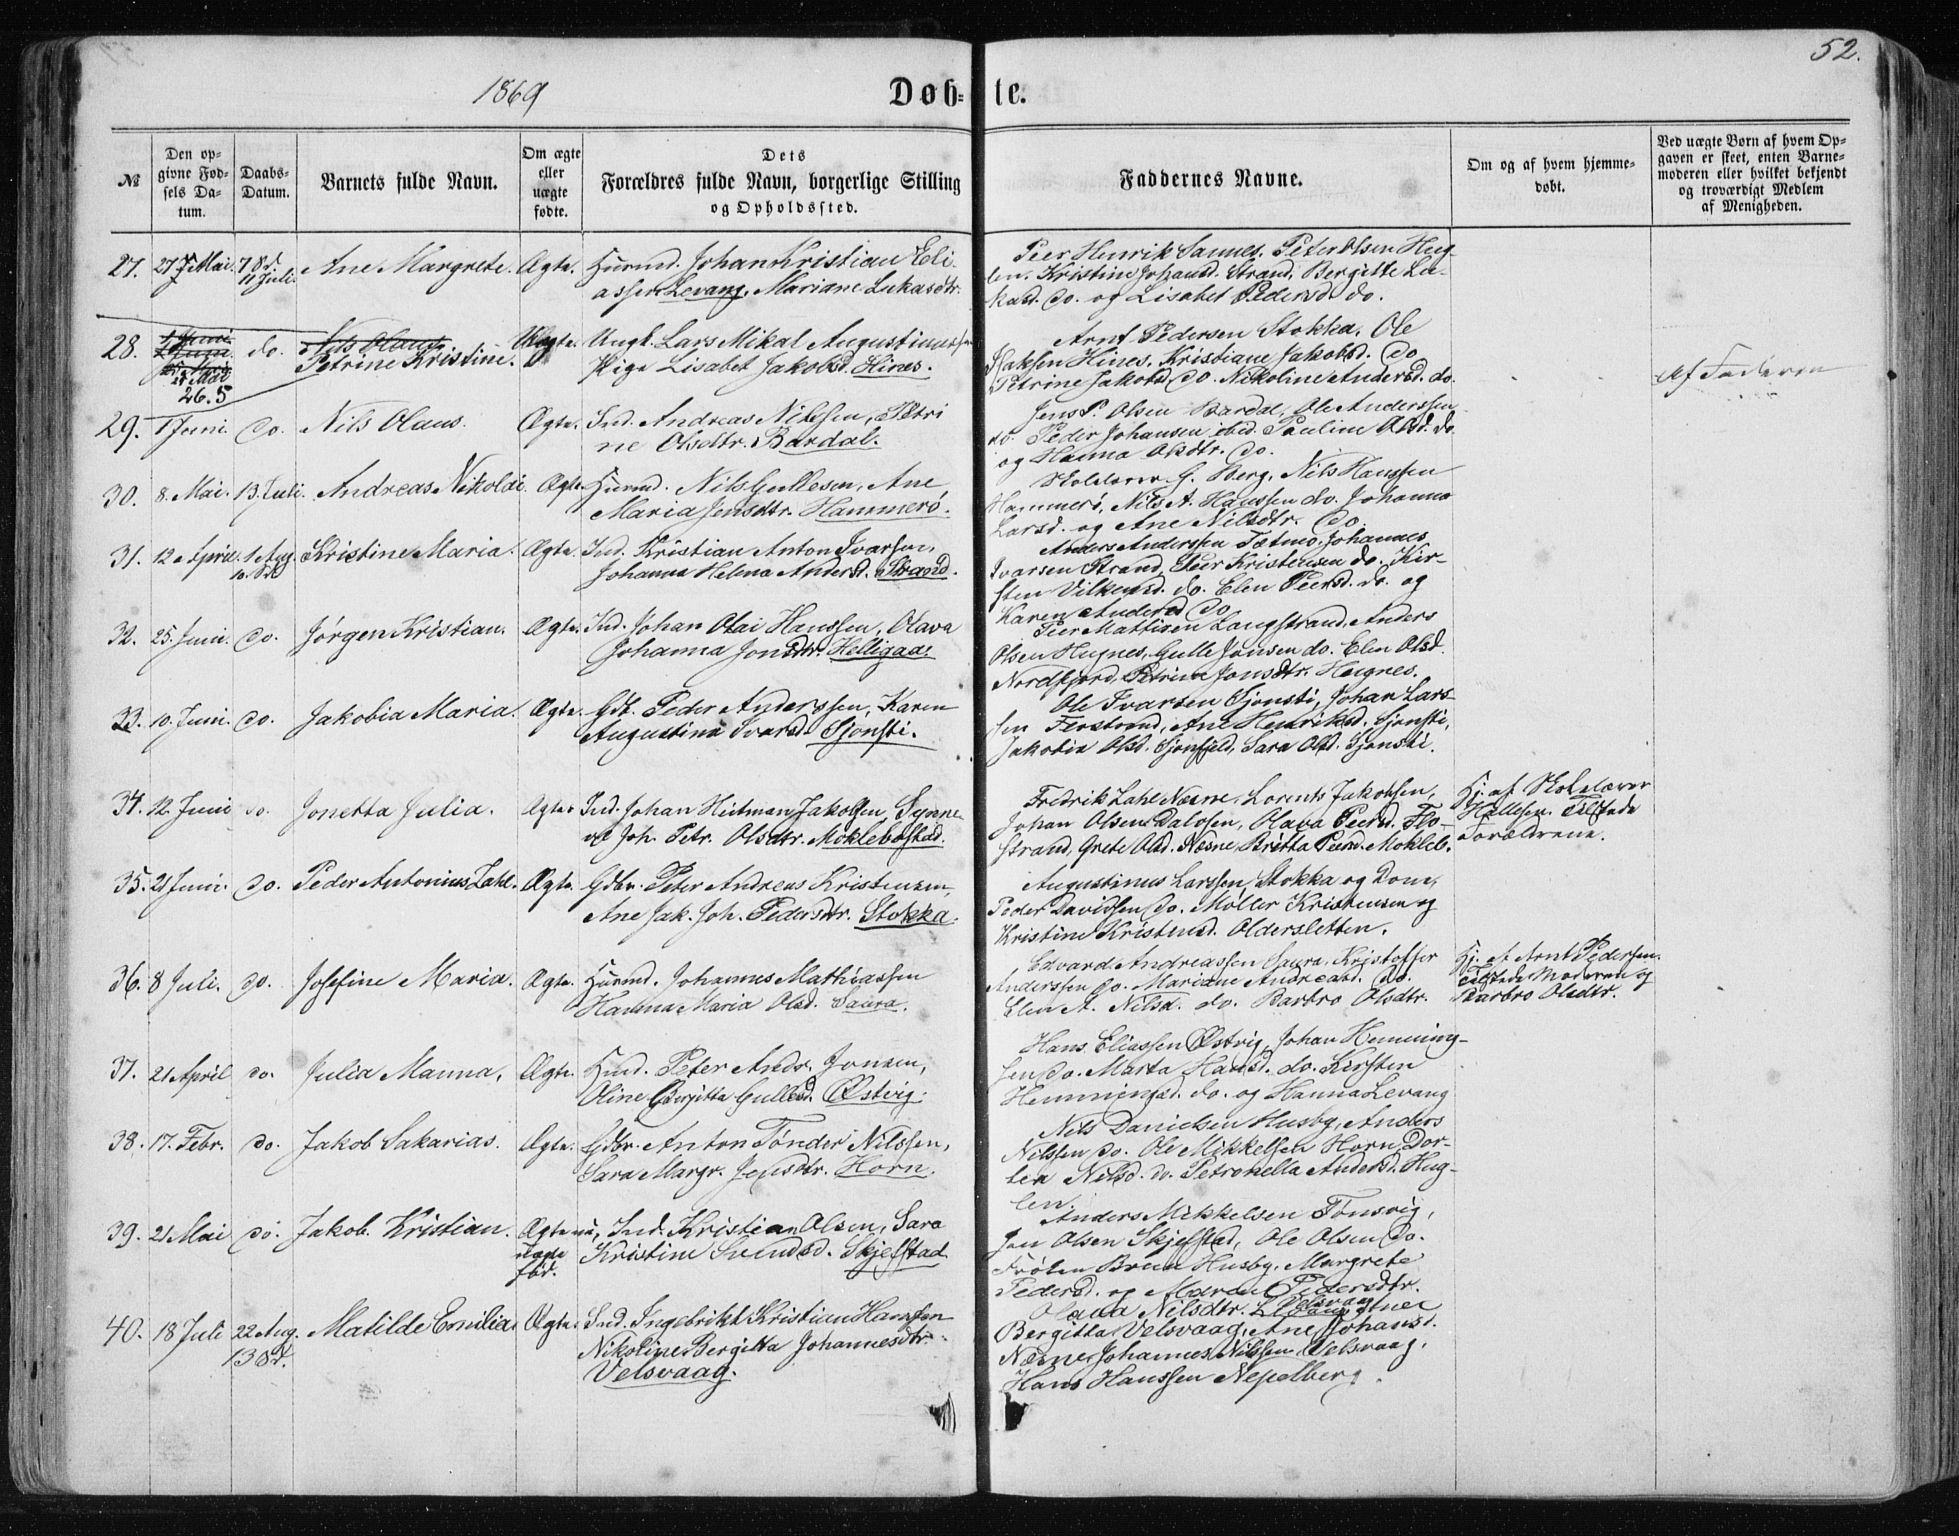 52.
1869
Døb= te.
№
Den op=
givne Fød=
sels Da=
tum.
Daabs=
Datum.
Barnets fulde Navn.
Om ægte
eller
uægte
fødte.
Dets
Forældres fulde Navn, borgerlige Stilling
og Opholdssted.
Faddernes Navne.
Om og af hvem hjemme=
døbt.
Ved uægte Børn af hvem Op=
gaven er skeet, enten Barne=
moderen eller hvilket bekjendt
og troværdigt Medlem
af Menigheden.
27. 27 Mai. 11 Juli. Ane Margrete. Ægte. Huusmd. Johan Kristian Eli-
assen Levang, Mariane Lukasdtr.
Peer Henrik Sannes, Peter Olsen Hug-
len, Kristine Johansd. Strand, Bergitte Lu-
kasd. do. og Lisabet Pedersd. do.
28. 26.5 do. Nils Olaus
Petrine Kristine. Uægte. Ungk. Lars Mikal Augustinussen
Pige Lisabet Jakobsd. Hines.
Arnt Pedersen Stokka, Ole
Isaksen Hines, Kristiane Jakobsd. do
Petrine Jakobsd. do. Nikoline Andersd. do.
Af Faderen
29. 1 Juni. do. Nils Olaus. Ægte. Ind. Andreas Nilssen, Petri
ne Olsdtr. Bardal.
Jens P. Olsen Bardal, Ole Anderssen
do. Peder Johansen ibid. Pauline Olsd. do.
og Hanna Olsdtr. do.
30. 8. Mai. 13. Juli. Andreas Nikolai Ægte. Huusmd. Nils Gullesen, Ane
Maria Jensdtr. Hammerø.
Skolelærer G. Berg, Nils Hanssen
Hammerø, Nils A. Hanssen do. Johanna
Larsd. og Ane Nilsdtr. do.
31. 12 April. 1 Aug. Kristine Maria. Ægte. Ind. Kristian Anton Ivarsen,
Johanna Helena Andersd. Strand.
Anders Anderssen Tætmo, Johannes
Ivarsen Strand, Peer Kristensen do. Kir-
sten Vilkensd. do. Elen Peersd. do. og
Karen Andersd. do
32. 25. Juni. do. Jørgen Kristian. Ægte. Ind. Johan Olai Hanssen, Olava
Johanna Jonsdtr. Helligaa.
Peer Mattisen Langstrand, Anders
Olsen Hugnes, Gulle Jonsen do. Elen Olsd.
Nordfjord, Petrine Jonsdtr. Hugnes.
33. 10. Juni. do. Jakobia Maria. Ægte. Gdb. Peder Anderssen, Karen
Augustina Ivarsd. Sjonsti.
Ole Ivarsen Sjonsti, Johan Lars-
sen Flostrand, Ane Henriksd. Sjonsti,
Jakobia Olsd. Sjonfjeld, Sara Olsd. Sjonsti.
34. 12. Juni do. Jonetta Julia. Ægte. Ind. Johan Hitman Jakobsen, Synne
ve Joh. Petr. Olsdtr. Moklebostad.
Fredrik Zahl Næsne, Lorents Jakobsen,
Johan Olsen Dalosen, Olava Peersd. Flo-
strand, Grete Olsd. Næsne, Britta Peersd. Mokleb.
Hj. af Skolelærer
Hallesen. Tilstede
Forældrene.
35. 21 Juni. do. Peder Antonius Zahl. Ægte. Gdbr. Peter Andreas Kristensen,
Ane Jak. Joh. Pedersdtr. Stokka.
Augustinus Larssen, Stokka og Dom,
Peder Davidsen do. Møller Kristensen og
Kristine Kristensd. Oldersletten.
36. 8 Juli. do. Josefine Maria. Ægte. Huusmd. Johannes Mathiassen
Hanna Maria Olsd. Saura.
Edvard Andreassen Saura, Kristoffer
Anderssen do. Mariane Andreasd. do.
Elen A. Nilsd. do. Barbro Olsdtr.
Hj. af Arnt Pedersen.
Tilstede Moderen og
Barbro Olsdtr.
37. 21 April do. Julia Manna. Ægte. Husmd. Peter Andr. Jonsen,
Oline Birgitta Gullesd. Østvig.
Hans Eliassen Østvig, Johan Henning-
sen do. Marta Hansd. do. Kirsten
Henningsd. do. og Hanna Levang
38. 17. Febr. do. Jakob Sakarias. Ægte. Gdbr. Anton Tønder Nilssen,
Sara Margr. Jensdtr. Horn.
Nils Danielsen Husby, Anders
Nilssen do. Ole Mikkelsen Horn, Dor-
tea Nilsd. do. Petronella Andersd. Hug-
len
39. 21 Mai do. Jakob Kristian. Ægte
uægte
fød. Ind. Kristian Olsen, Sara
Kristine Svendsd. Skjelstad
Anders Mikkelsen Tømsvig,
Jon Olsen Skjelstad, Ole Olsen do.
Frøken Brun Husby, Margrete
Pedersd. og Maren Pedersdtr.
40. 18 Juli 22 Aug.
13 Sd. Matilde Emilia. Ægte. Ind. Ingebrikt Kristian Hanssen
Nikoline Bergitta Johannesdtr.
Velsvaag.
Olava Nilsdtr. Velsvaag
Bergitta Velsvaag, Ane Johansd.
Næsne, Johannes Nilssen Velsvaag,
Hans Hanssen Nepelberg.